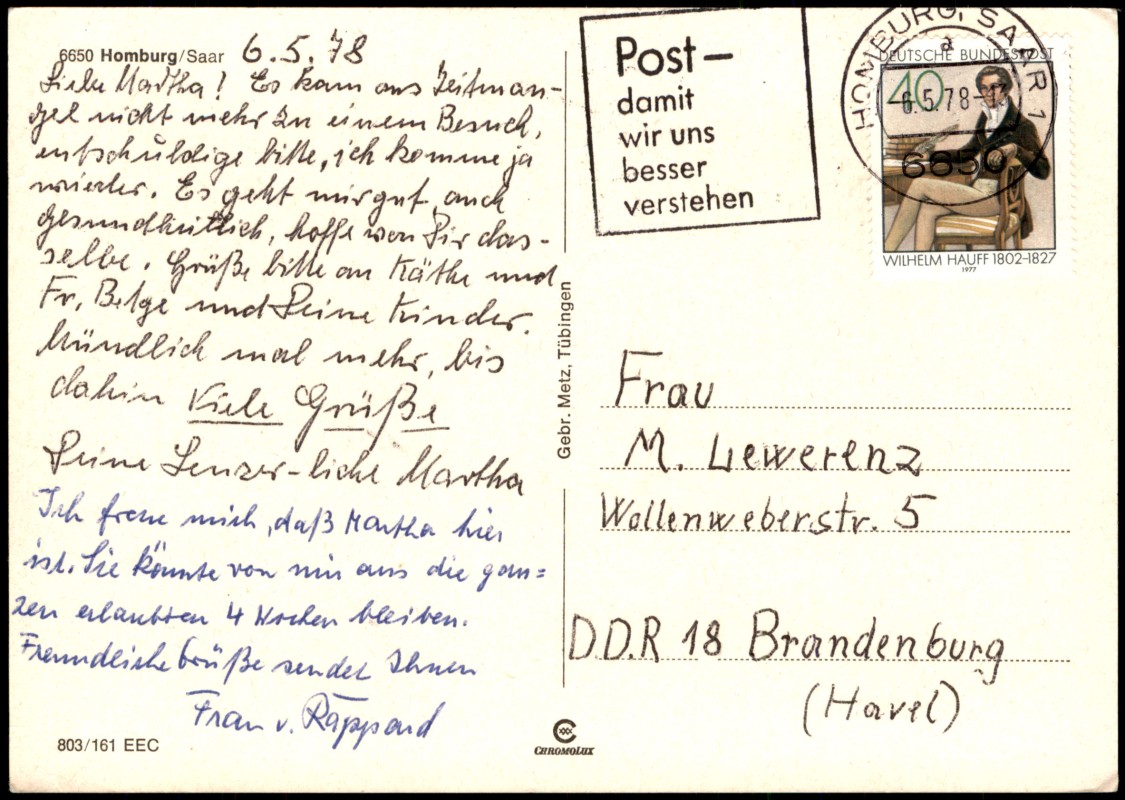 6650 Homburg/Saar 6.5.78
Liebe Martha! Es kam aus Zeitman-
gel nicht mehr zu einem Besuch,
entschuldige bitte, ich komme ja
wieder. Es geht mir gut, auch
gesundheitlich, hoffe von Dir das-
selbe. Grüße bitte an Käthe und
Fr. Belge und Deine Kinder.
Mündlich mal mehr, bis
dahin Viele Grüße
Deine Lenzer-liche Martha
Ich freue mich, daß Martha hier
ist. Sie könnte von mir aus die gan=
zen erlaubten 4 Wochen bleiben.
Freundliche Grüße sendet Ihnen
Frau v. Rappard
803/161 EEC
Gebr. Metz, Tübingen
CHROMOLUX
Post –
damit
wir uns
besser
verstehen
HOMBURG, SAAR 1
a
-6.5.78-
6650
DEUTSCHE BUNDESPOST
40
WILHELM HAUFF 1802-1827
1977
Frau
M. Lewerenz
Wollenweberstr. 5
DDR 18 Brandenburg
(Havel)